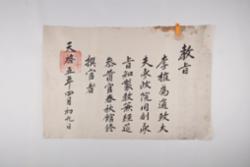 敎旨
李楗爲通政大
夫承政院同副承
旨知製敎兼經筵
參贊官春秋館修
撰官者
天啓五年四月初九日